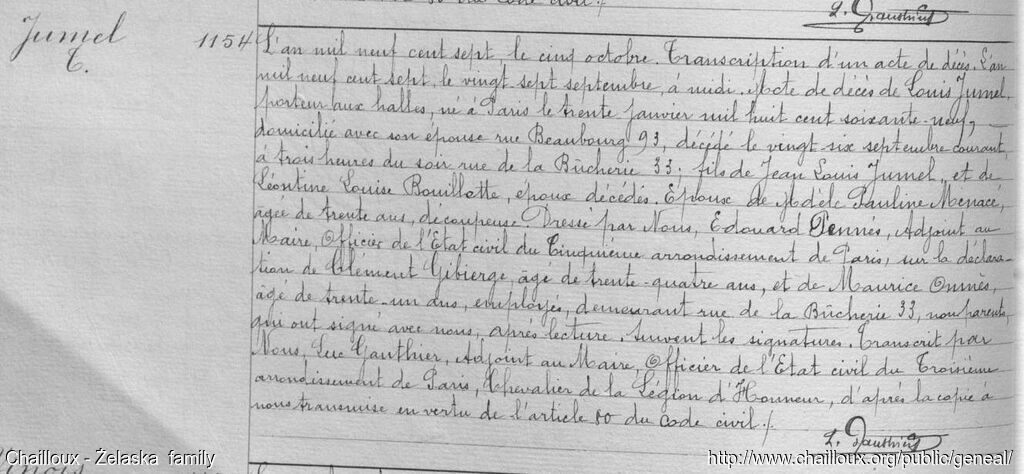 L. Gauthier
Jumel
T.
1154
L'an mil neuf cent sept, le cinq octobre. Transcription d'un acte de décès. L'an
mil neuf cent sept, le vingt sept septembre, à midi. Acte de décès de Louis Jumel,
porteur aux halles, né à Paris le trente janvier mil huit cent soixante-neuf,
domicilié avec son épouse rue Beaubourg 93, décédé le vingt six septembre courant,
à trois heures du soir rue de la Bûcherie 33; fils de Jean Louis Jumel, et de
Léontine Louise Bouillotte, époux décédés. Epoux de Adèle Pauline Menacé,
âgée de trente ans, découpeuse. Dressé par Nous, Edouard Pennès, Adjoint au
Maire, Officier de l'Etat civil du Cinquième arrondissement de Paris, sur la déclara-
tion de Clément Gibierge, âgé de trente-quatre ans, et de Maurice Omnès,
âgé de trente-un ans, employés, demeurant rue de la Bûcherie 33, non parents,
qui ont signé avec nous, après lecture. Suivent les signatures. Transcrit par
Nous, Luc Gauthier, Adjoint au Maire, Officier de l'Etat civil du Troisième
arrondissement de Paris, Chevalier de la Légion d'Honneur, d'après la copie à
nous transmise en vertu de l'article 80 du code civil./.
L. Gauthier
Chailloux - Żelaska family
http://www.chailloux.org/public/geneal/